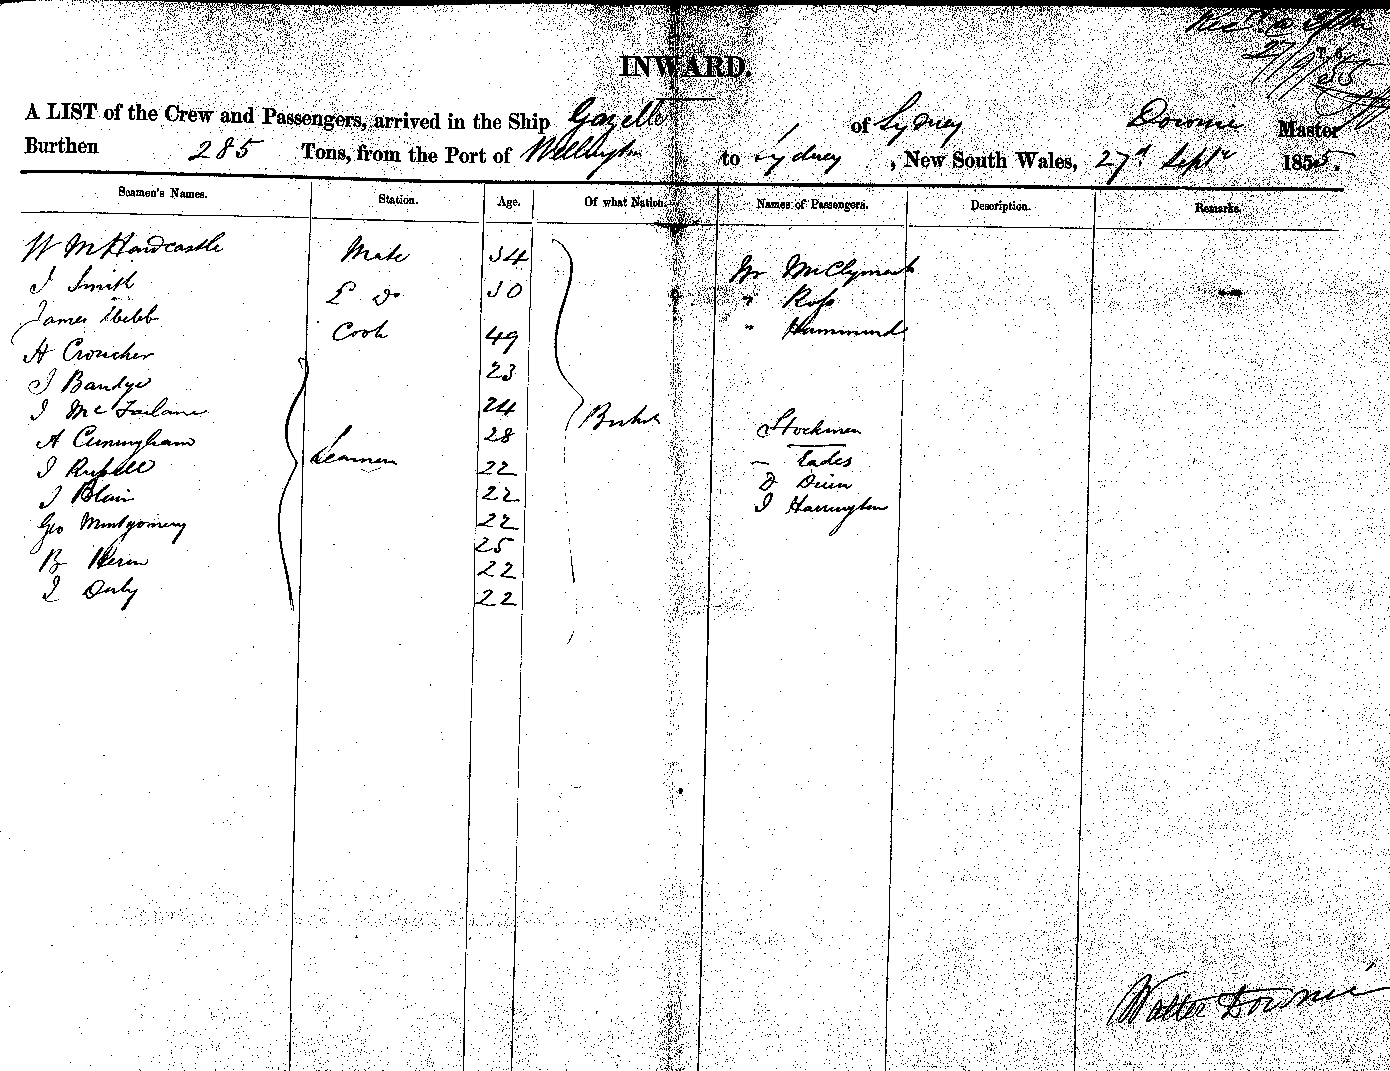 27/9/55
INWARD.
A LIST of the Crew and Passengers, arrived in the Ship Gazelle of Sydney Downie Master
Burthen 285 Tons, from the Port of Wellington to Sydney, New South Wales, 27th Septr 1855.
Seamen's Names. Station. Age. Of what Nation. Names of Passengers. Description. Remarks.
W M Hardcastle Mate 34 Mr McClymont
J Smith 2 Do 30 " Ross
James Webb Cook 49 " Hammond
H Croucher 23
J Bandye 24
J McFarlane 28 British Stockmen
A Cuningham Seamen 22 — Eades
J Russell 22 D
J Blair 22 J Harrington
Geo Montgomery 25
22
J 22
Walter Downie